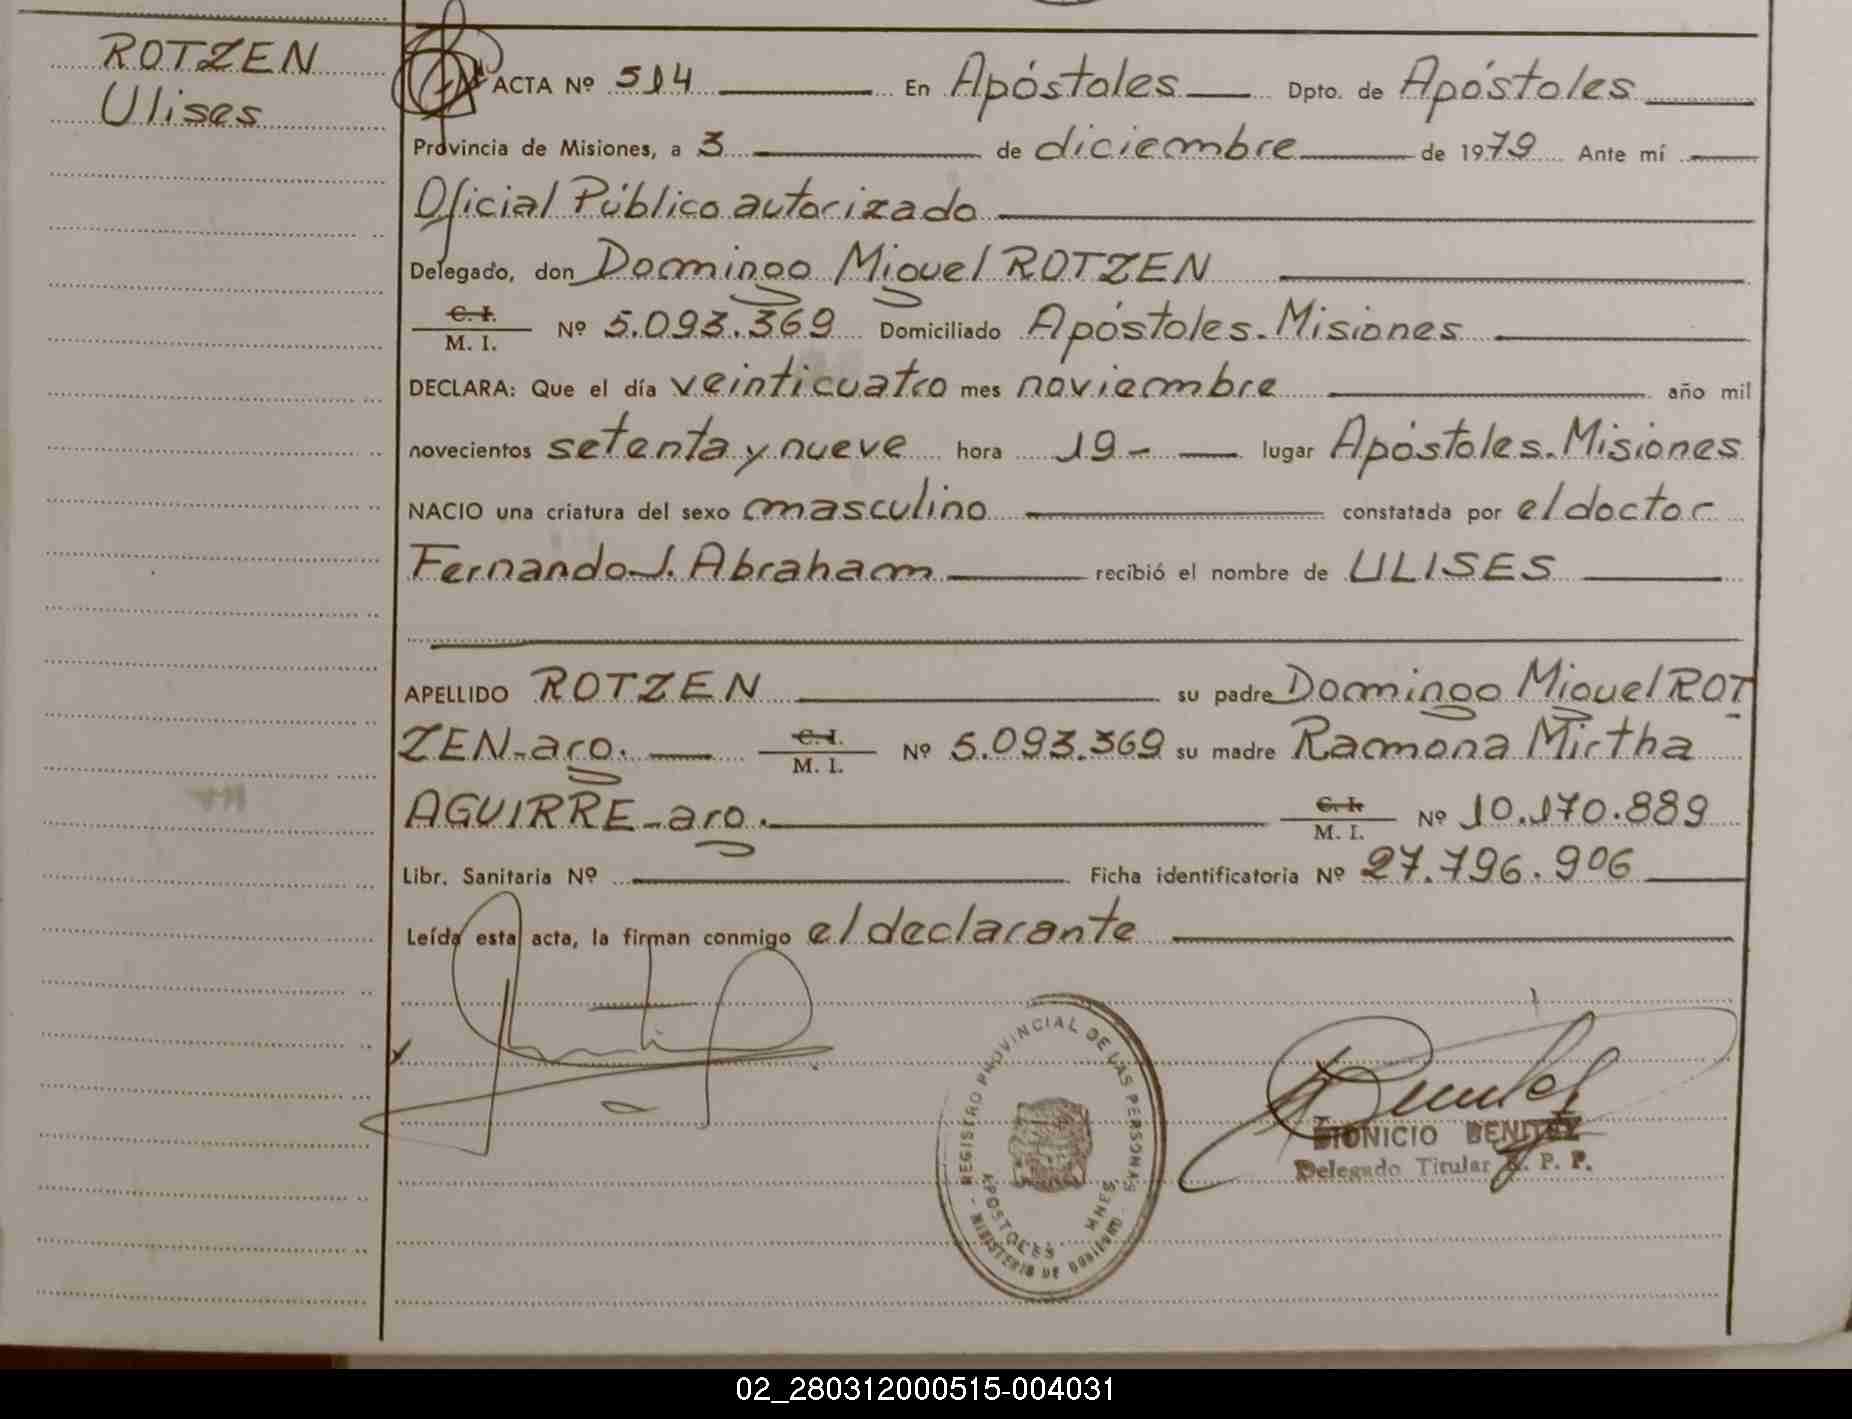 ROTZEN
Ulises
ACTA Nº 514 En Apóstoles Dpto. de Apóstoles
Provincia de Misiones, a 3 de diciembre de 1979 Ante mí
Oficial Público autorizado
Delegado, don Domingo Miguel ROTZEN
C. I. M. I. Nº 5.093.369 Domiciliado Apóstoles-Misiones
DECLARA: Que el día veinticuatro mes noviembre año mil
novecientos setenta y nueve hora 19- lugar Apóstoles-Misiones
NACIO una criatura del sexo masculino constatada por el doctor
Fernando J. Abraham recibió el nombre de ULISES
APELLIDO ROTZEN su padre Domingo Miguel ROT
ZEN-arg. C. I. M. I. Nº 5.093.369 su madre Ramona Mirtha
AGUIRRE-arg. C. I. M. I. Nº 10.170.889
Libr. Sanitaria Nº Ficha identificatoria Nº 27.796.906
Leída esta acta, la firman conmigo el declarante
REGISTRO PROVINCIAL DE LAS PERSONAS
APOSTOLES MNES.
MINISTERIO DE GOBIERNO
DIONICIO BENITEZ
Delegado Titular R. P. P.
02_280312000515-004031